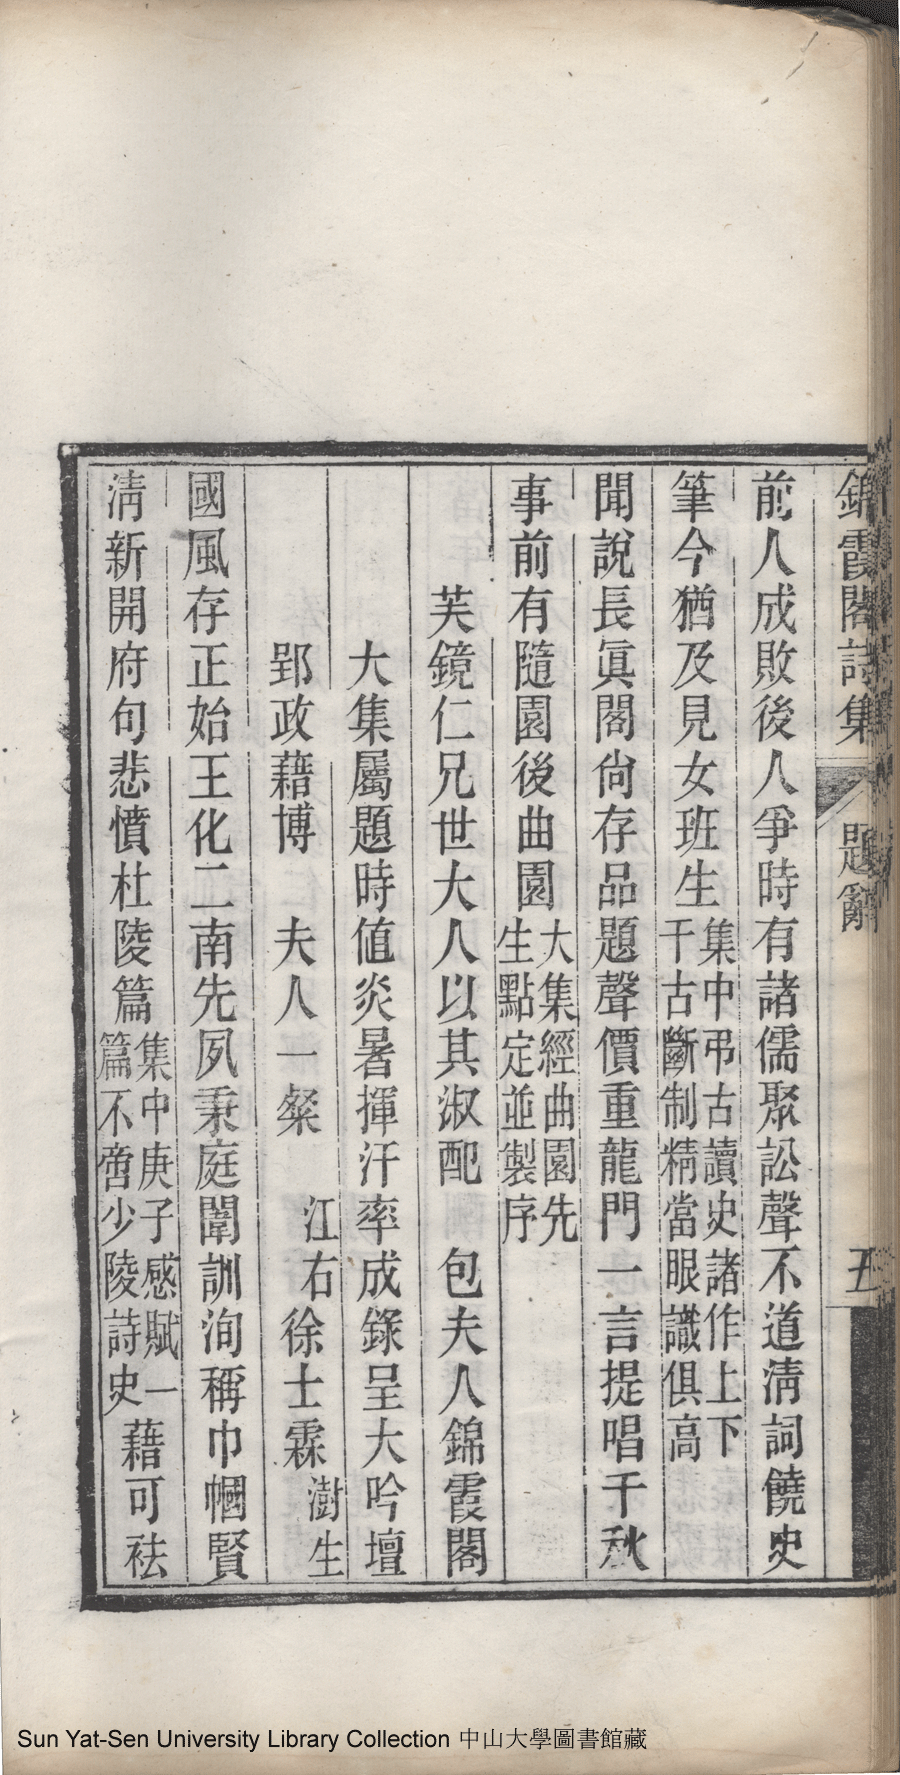 錦霞閣詩集 題辭 五
前人成敗後人爭時有諸儒聚訟聲不道淸詞饒史
筆今猶及見女班生集中弔古讀史諸作上下千古斷制精當眼識俱高
聞說長眞閣尙存品題聲價重龍門一言提唱千秋
事前有隨園後曲園大集經曲園先生點定並製序
芙鏡仁兄世大人以其淑配 包夫人錦霞閣
大集屬題時値炎暑揮汗率成錄呈大吟壇
郢政藉博 夫人一粲 江右徐士霖澍生
國風存正始王化二南先夙秉庭闈訓洵稱巾幗賢
淸新開府句悲憤杜陵篇集中庚子感賦一篇不啻少陵詩史藉可祛
Sun Yat-Sen University Library Collection 中山大學圖書館藏